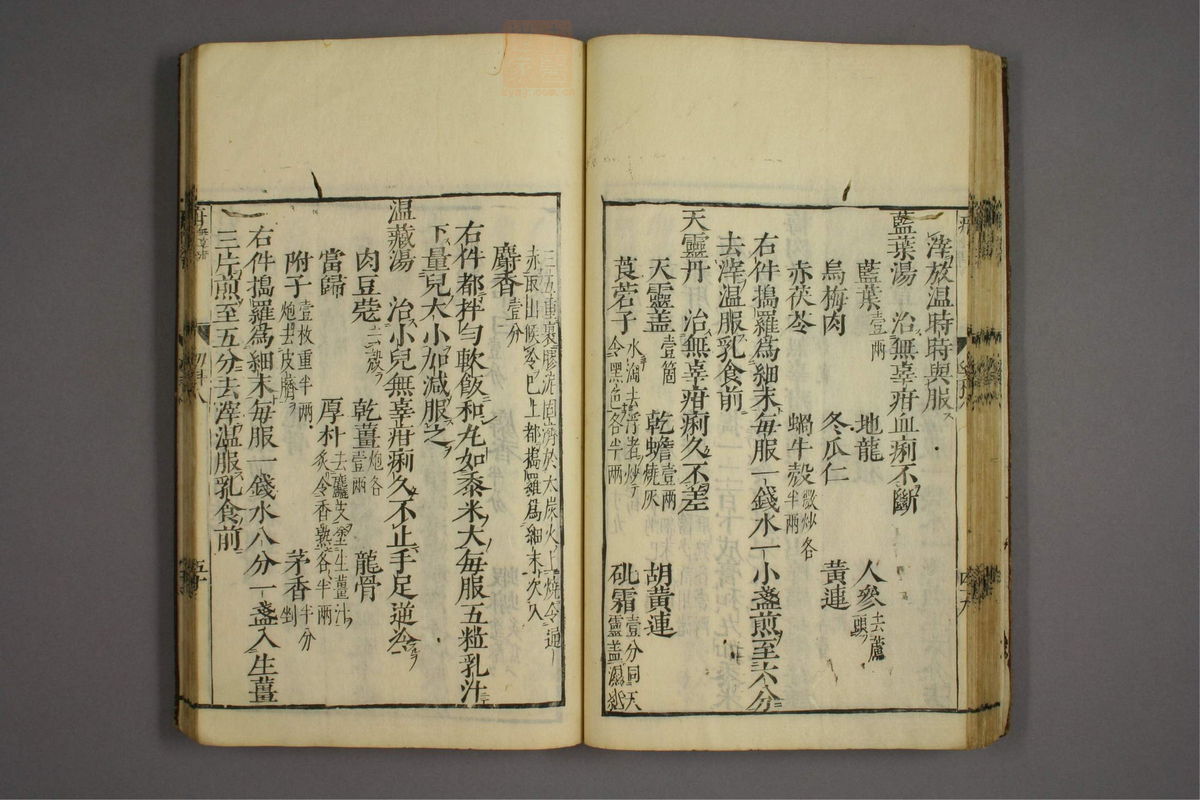 滓放温時時與服
藍葉湯 治無辜疳血痢不斷
藍葉 壹兩 地龍 人參 去蘆頭
烏梅肉 冬瓜仁 黃連
赤茯苓 蝸牛殼 微炒各半兩
右件搗羅爲細末每服一錢水一小盞煎至六分
去滓温服乳食前
天靈丹 治無辜疳痢久不差
天靈蓋 壹箇 乾蟾 壹兩燒灰 胡黃連
莨菪子 水淘去浮者炒令黑色各半兩 砒霜 壹分同天靈蓋濕
三五重裹膠泥固濟於大炭火上燒令通
赤取出候冷已上都搗羅爲細末次入
麝香 壹分
右件都拌勻軟飯和丸如黍米大每服五粒乳汁
下量兒大小加減服之
温藏湯 治小兒無辜疳痢久不止手足逆冷
肉豆蔻 去殼 乾薑 炮各壹兩 龍骨
當歸 厚朴 去麤皮塗生薑汁炙令香熟各半兩
附子 壹枚重半兩炮去皮臍 茅香 半分剉
右件搗羅爲細末每服一錢水八分一盞入生薑
三片煎至五分去滓温服乳食前